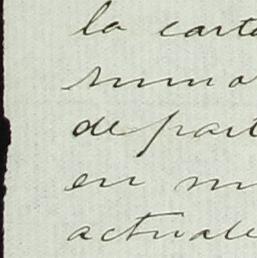 la carta
de part
en m
actuale